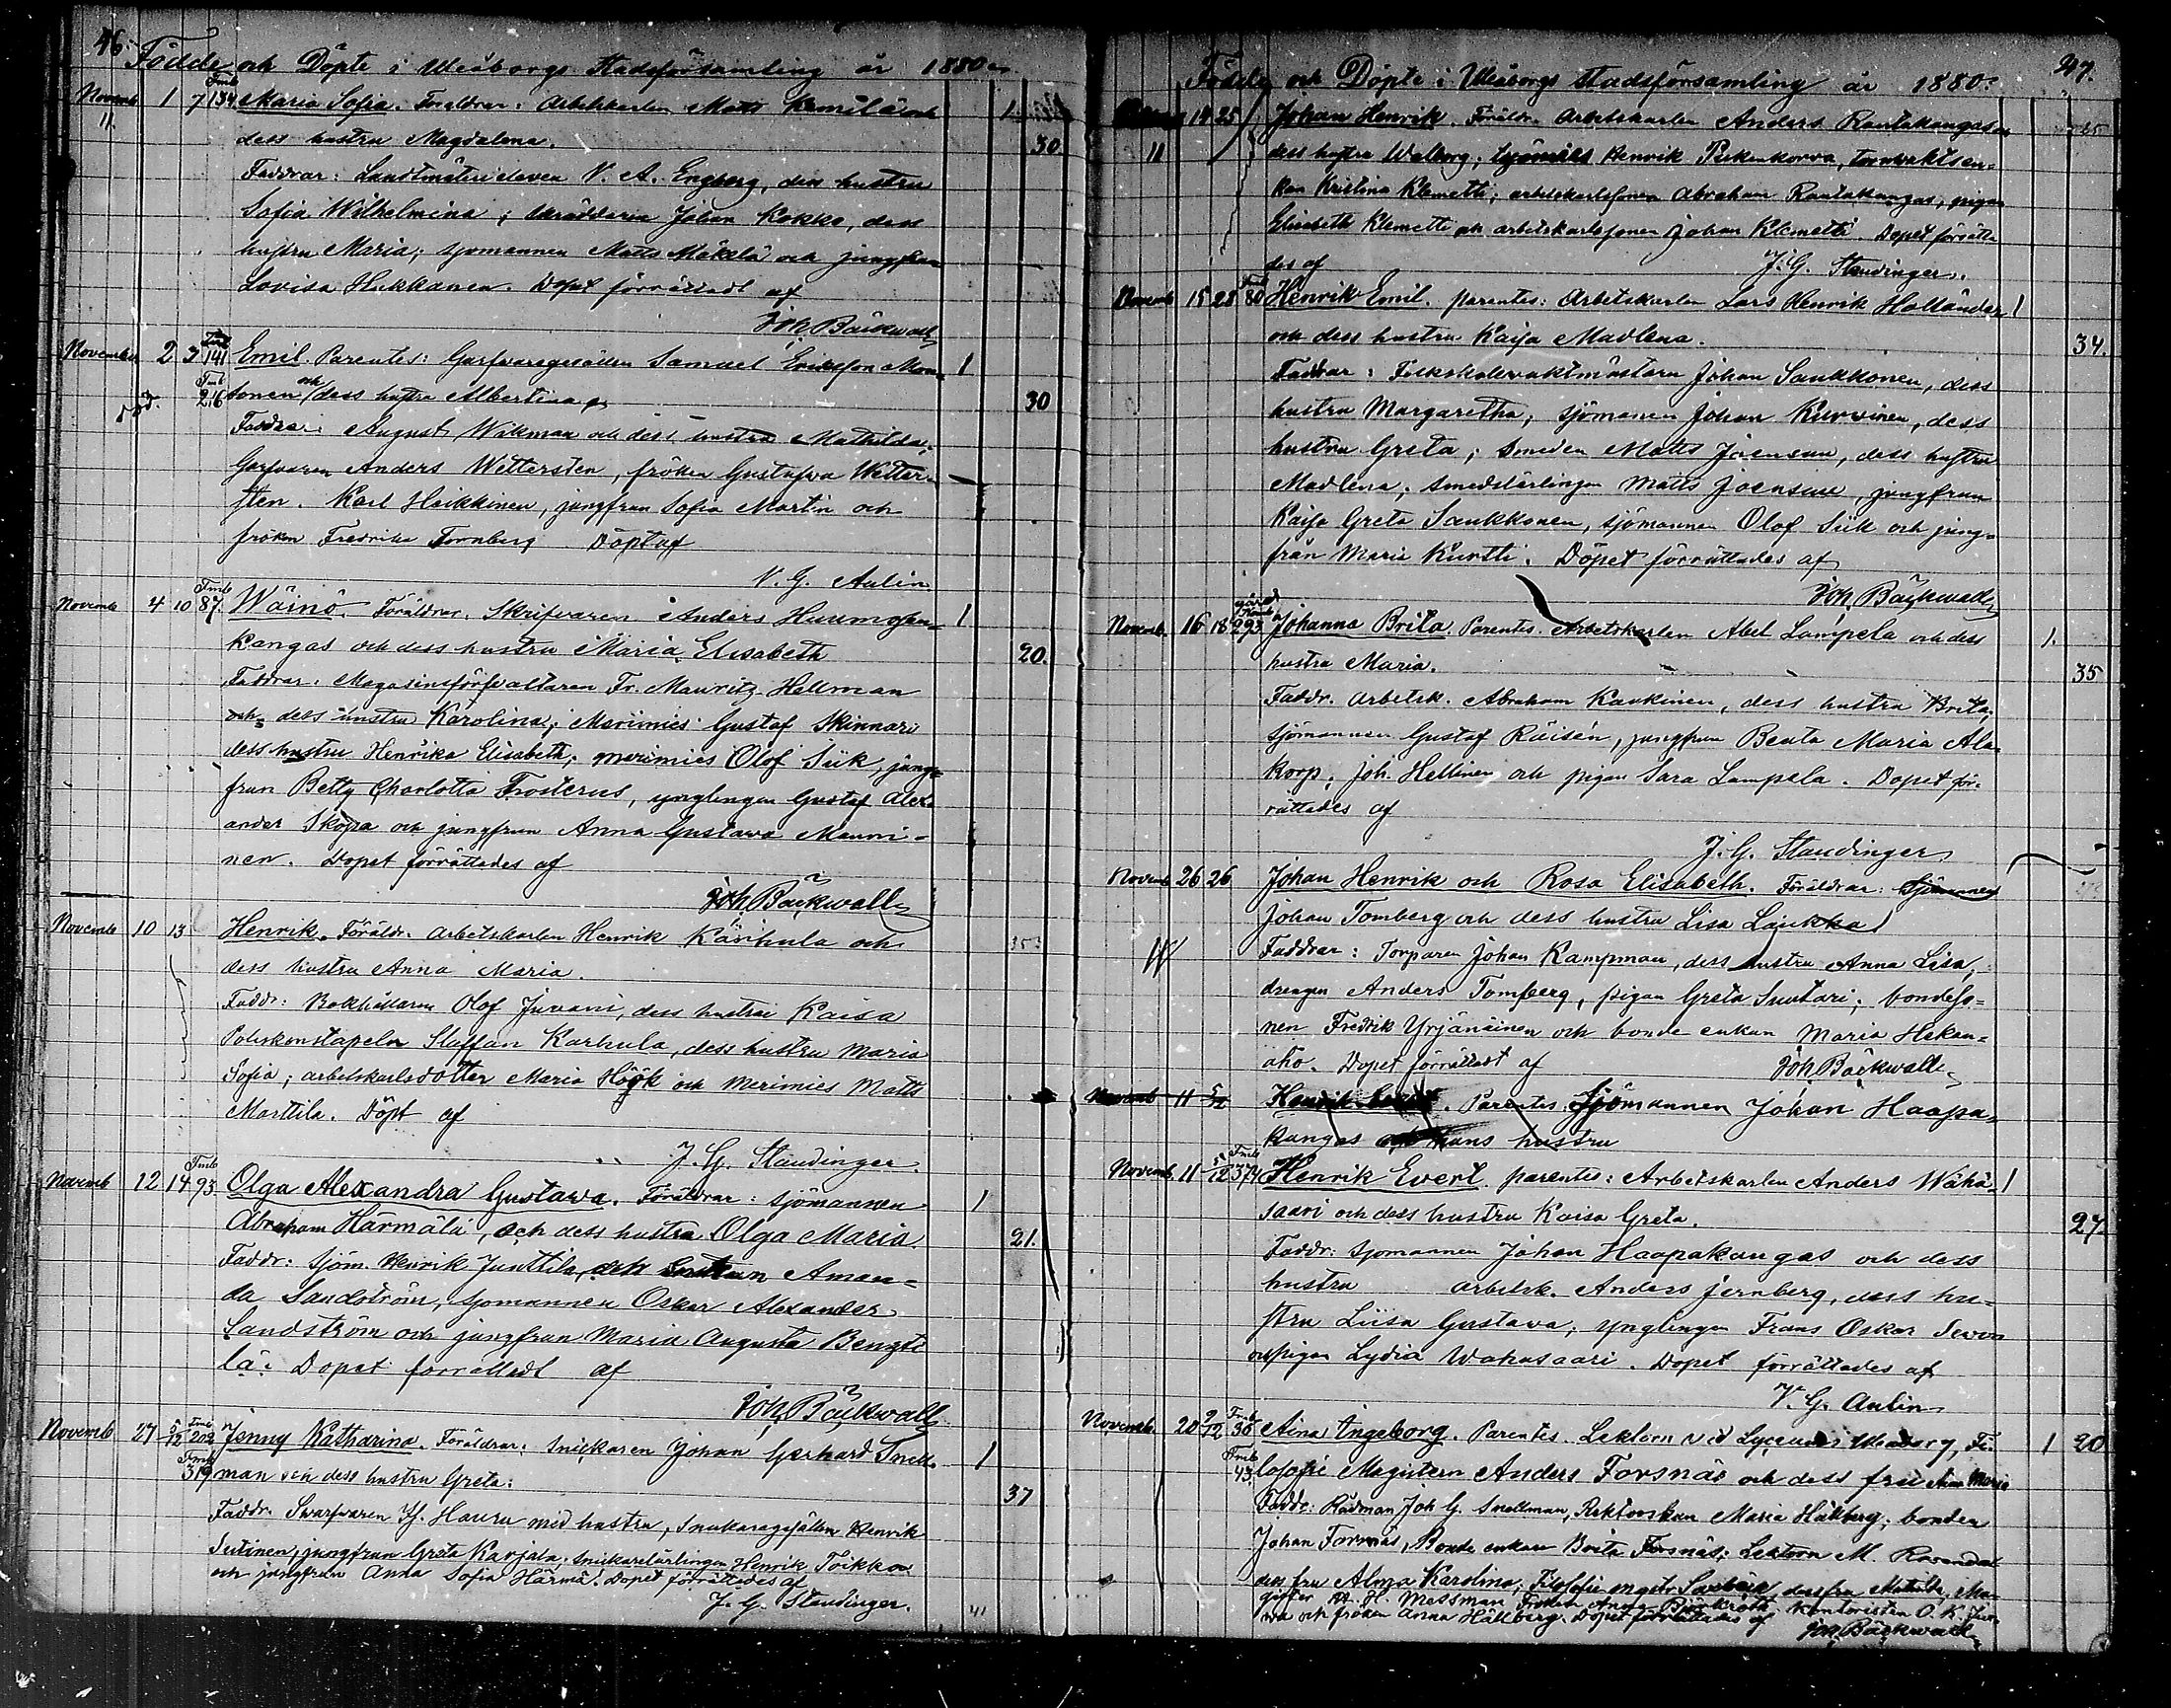 46.
Födde och Döpte i Uleåborgs Stadsförsamling år 1880
Novemb 1 7 Fmb 134 Maria Sofia. Föräldrar: Arbetskarlen Matts 1
11. dess hustru Magdalena. 30
Faddrar: Landtmäterieleven V. A. Engberg, dess hustru
Sofia Wilhelmina; skräddaren Johan Kokko, dess
hustru Maria; sjömannen Matts Mäkelä och jungfrun
Lovisa Hukkanen. Dopet förrättadt af
Joh. Bäckwall
November 2 7 141 Emil. Parentes: Garfvaregesällen Samuel Eriksson 1
Fmb 216 och dess hustru Albertina 30
Faddrar: August Wikman och dess hustru Mathilda;
Garfvaren Anders Wettersten, fröken Gustafva Wetter-
sten. Karl Heikkinen, jungfrun Sofia Martin och
fröken Fredrika Tornberg Döpt af
V. G. Aulin.
Novemb 4 10 Fmb 87. Wäinö. Föräldrar. Skrifvaren Anders 1
kangas och dess hustru Maria Elisabeth 20.
Faddrar. Magasinsförvaltaren Fr. Mauritz Hellman
och dess hustru Karolina; Merimies Gustaf Skinnari
dess hustru Henrika Elisabeth; merimies Olof Siik, jung-
frun Betty Charlotta Frosterus, ynglingen Gustaf Alex-
ander Sköpa och jungfrun Anna Gustava Manni-
nen. Dopet förrättades af
Joh. Bäckwall
Novemb 10 13 Henrik. Föräldr. arbetskarlen Henrik Karhula och
dess hustru Anna Maria.
Faddr: Bokhållaren Olof Juvani, dess hustru Kaisa
Poliskonstapeln Staffan Karhula, dess hustru Maria
Sofia; arbetskarlsdotter Maria Höök och Merimies Matts
Marttila. Döpt af
J. G. Staudinger
Novemb 12 14 Fmb 93 Olga Alexandra Gustava. Föräldrar: sjömannen 1
Abraham Härmälä, och dess hustru Olga Maria. 21.
Faddr: sjöm. Henrik Junttila, Aman-
da Sandström, sjömannen Oskar Alexander
Sandström och jungfrun Maria Augusta Bengts
lä. Dopet förrättadt af
Joh. Bäckwall
Novemb 27 5/12 Fmb 202 Jenny Katharina. Föräldrar: snickaren Johan Gerhard Snell- 1
Fmb 319 man och dess hustru Greta. 37
Faddr. Svarfvaren Hauru med hustru, Snickaregesällen Henrik
Sutinen, jungfrun Greta Karjala. Snickarelärlingen Henrik Toikka
och jungfrun Anna Sofia Härmä. Dopet förrättades af
J. G. Staudinger.
41
47.
Födde och Döpte i Uleåborgs stadsförsamling år 1880.
14 25 Johan Henrik. Föräldr. Arbetskarlen Anders Rantakangas och
11 dess hustru Walborg; Henrik
Kristina Klemetti; arbetskarlssonen Abraham Rantakangas, pigan
Elisabeth Klemetti och arbetskarlssonen Johan Klemetti. Dopet förrätta-
des af J. G. Staudinger.
Novemb 15 28 Fmb 80 Henrik Emil. parentes: Arbetskarlen Lars Henrik Holländer 1
och dess hustru Kaija Madlena. 34.
Faddrar: Folkskolevaktmästaren Johan Saukkonen, dess
hustru Margaretha, sjömannen Johan Kurvinen, dess
hustru Greta; smeden Matts Joensuu, dess hustru
Madlena; smedslärlingen Matts Joensuu, jungfrun
Kaija Greta Saukkonen, sjömannen Olof Siik och jung-
frun Maria Kurtti. Döpet förrättades af
Joh. Bäckwall
Novemb. 16 18 293 Johanna Brita. Parentes. Arbetskarlen Abel Lampela och dess 1.
hustru Maria. 35
Faddr. arbetsk. Abraham Kaukinen, dess hustru Brita;
sjömannen Gustaf Räisén, jungfrun Beata Maria Ala-
korp. Joh. Hellinen och pigan Sara Lampela. Dopet för-
rättades af
J. G. Staudinger
Novemb 26 26 Johan Henrik och Rosa Elisabeth. Föräldrar: sjömannen
Johan Tomberg och dess hustru Lisa Laukka
Faddrar: Torparen Johan Kampman, dess hustru Anna Lisa,
drengen Anders Tomberg, pigan Greta Suutari; bondeso-
nen Fredrik Yrjänäinen och bonde enkan Maria Hekan-
aho. Dopet förrättadt af Joh. Bäckwall
Novemb 11 5/12 Henrik. Parentes. Sjömannen Johan Haapa-
kangas och hans hustru
Novemb. 11 5/12 Fmb 374 Henrik Evert. parentes: Arbetskarlen Anders Wähä- 1
saari och dess hustru Kaisa Greta. 27.
Faddr: sjömannen Johan Haapakangas och dess
hustru arbetsk. Anders Jernberg, dess hu-
stru Liisa Gustava, ynglingen Frans Oskar
pigan Lydia Wähäsaari. Dopet förrättades af
V. G. Aulin
Novemb 20 2/12 Fmb 36 Aina Ingeborg. Parentes. Lektorn vid Lyceum i Uleåborg, Fi- 1 20
Fmb 43. losofie Magistern Anders Forsnäs och dess fru Maria
Faddr: Rådman Joh G. Snellman, Rektorskan Maria Hällberg; bonden
Johan Forsnäs, Bonde enkan Brita Forsnäs; Lektorn M. Rosendal
dess fru Alma Karolina; Filosofie magister dess fru Mathilda, Ma-
gister H. Messman, Fröken Anna Björkroth. Kontoristen O. K.
och fröken Anna Hällberg. Dopet förrättades af Joh. Bäckwall